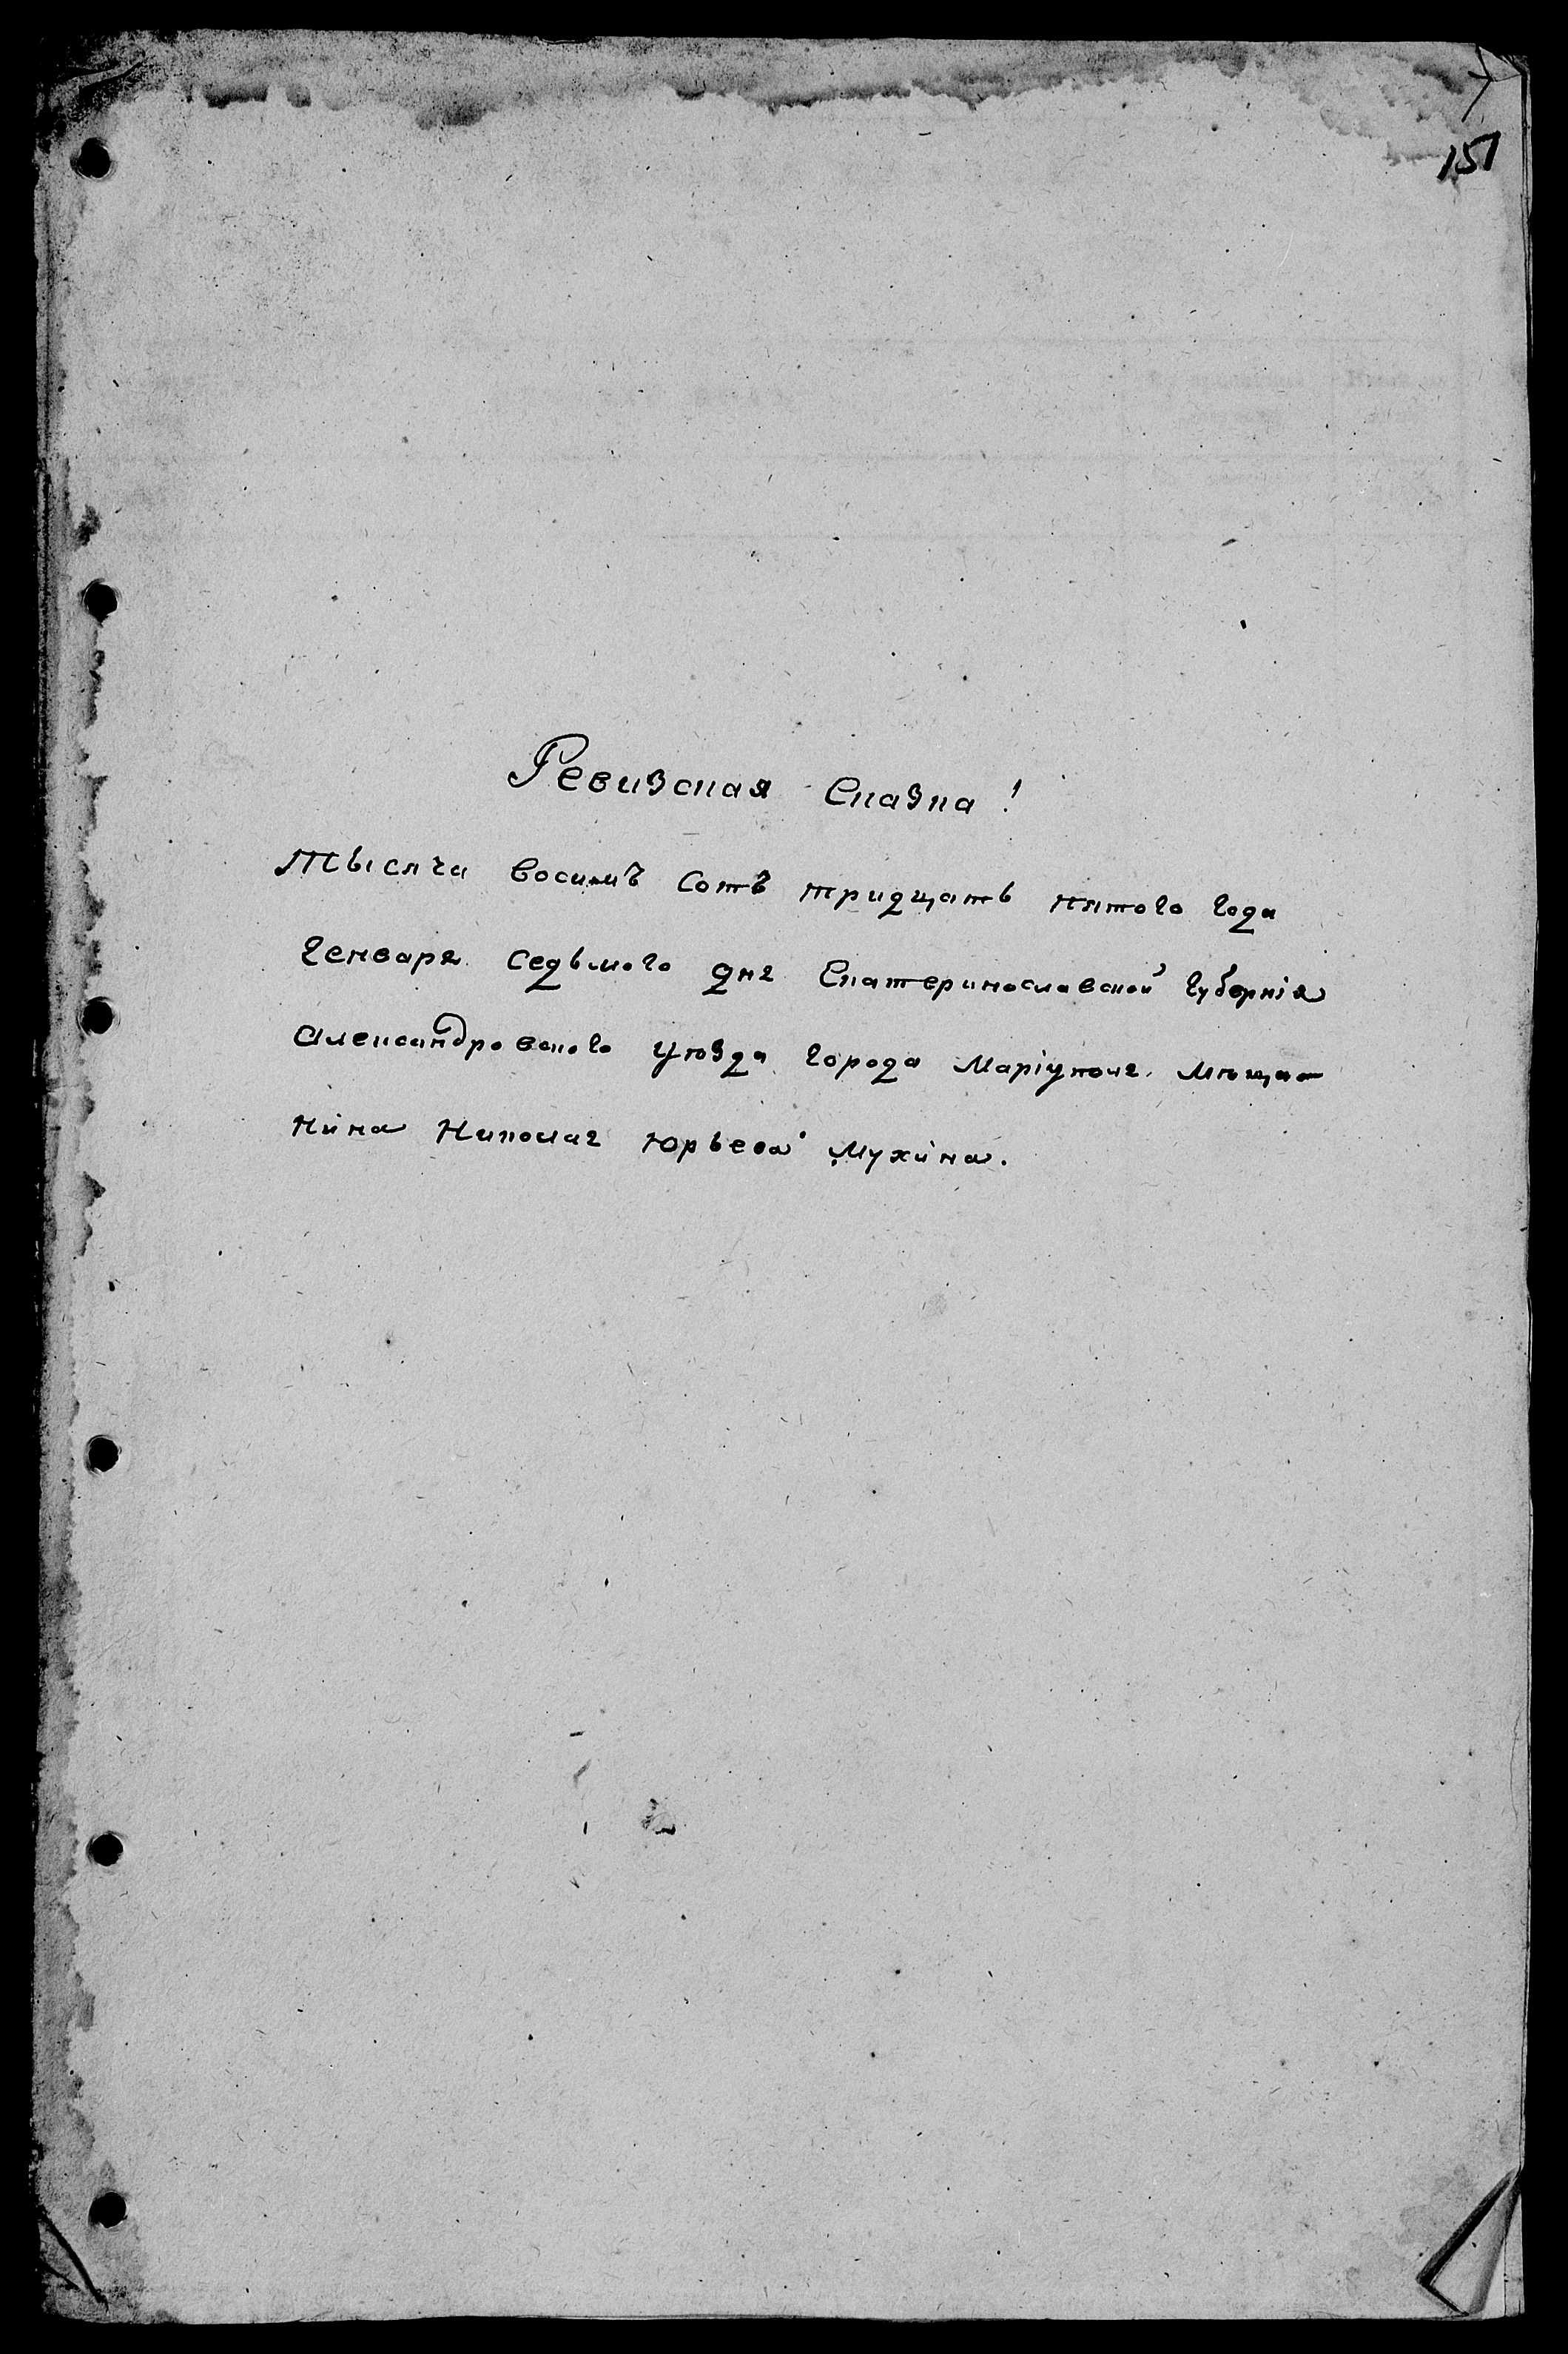 151
Ревизская Сказка!
Тысяча восимъ сотъ тридцать пятого года
Генваря седьмого дня Екатеринославской губернія
Александровского уѣзда города Маріуполя мѣща-
нина Николая Юрьева Мухина.